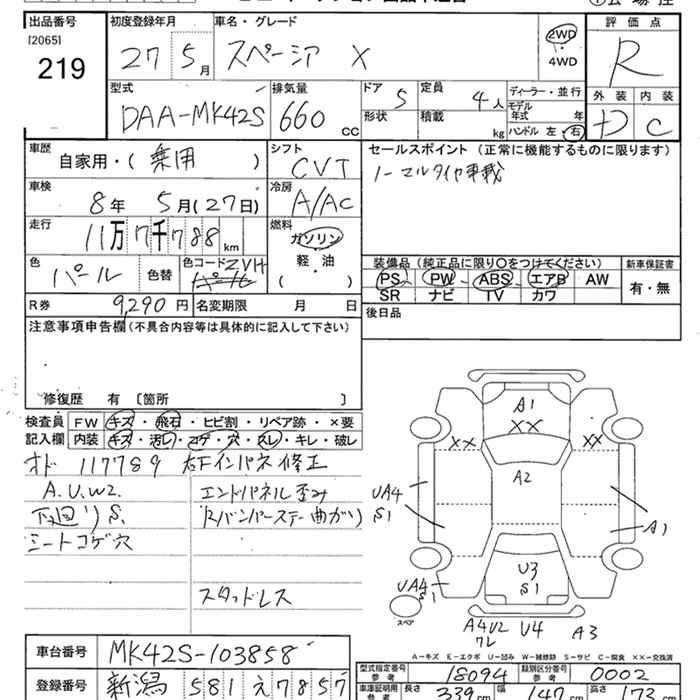 出品番号 初度登録年月 車名・グレード 評価点
[2065]
219
27 5月 スペーシア X 2WD ・ 4WD R
型式 排気量 ドア 定員 ディーラー・並行 外装 内装
DAA-MK42S 660 cc 5 4人 モデル年式 年 D C
形状 積載 kg ハンドル 左・右
車歴 シフト セールスポイント (正常に機能するものに限ります)
自家用・( 乗用 ) CVT ノーマルタイヤ車載
車検 冷房
8年 5月(27日) A/AC
走行 燃料
11万7千788km ガソリン
軽・油
( )
色 色替 色コード 装備品 (純正品に限り○をつけてください) 新車保証書
パール パール ZVH PS PW ABS エアB AW 有・無
SR ナビ TV カワ
R券 9,290円 名変期限 月 日 後日品
注意事項申告欄(不具合内容等は具体的に記入して下さい)
修復歴 有 [箇所 ]
検査員 FW キズ・飛石・ヒビ割・リペア跡・×要
記入欄 内装 キズ・汚レ・コゲ・穴・スレ・キレ・破レ
オド 117789 右Fインパネ修正
A.U.W2. エンドパネル歪み
下廻りS. Rバンパーステー曲がり
シートコゲ穴
スタッドレス
A1
XX
XX XX
A2
UA4
S1
A1
U3
S1
UA4
S1
スペア
A4U2 U4 A3
ワレ
A－キズ E－エクボ U－凹み W－補修跡 S－サビ C－腐食 XX－交換済
車台番号 MK42S-103858
型式指定番号 参考 18094 類別区分番号 参考 0002
登録番号 新潟 581 え7857
車庫証明用 参考 長さ 339cm 幅 147cm 高さ 173cm